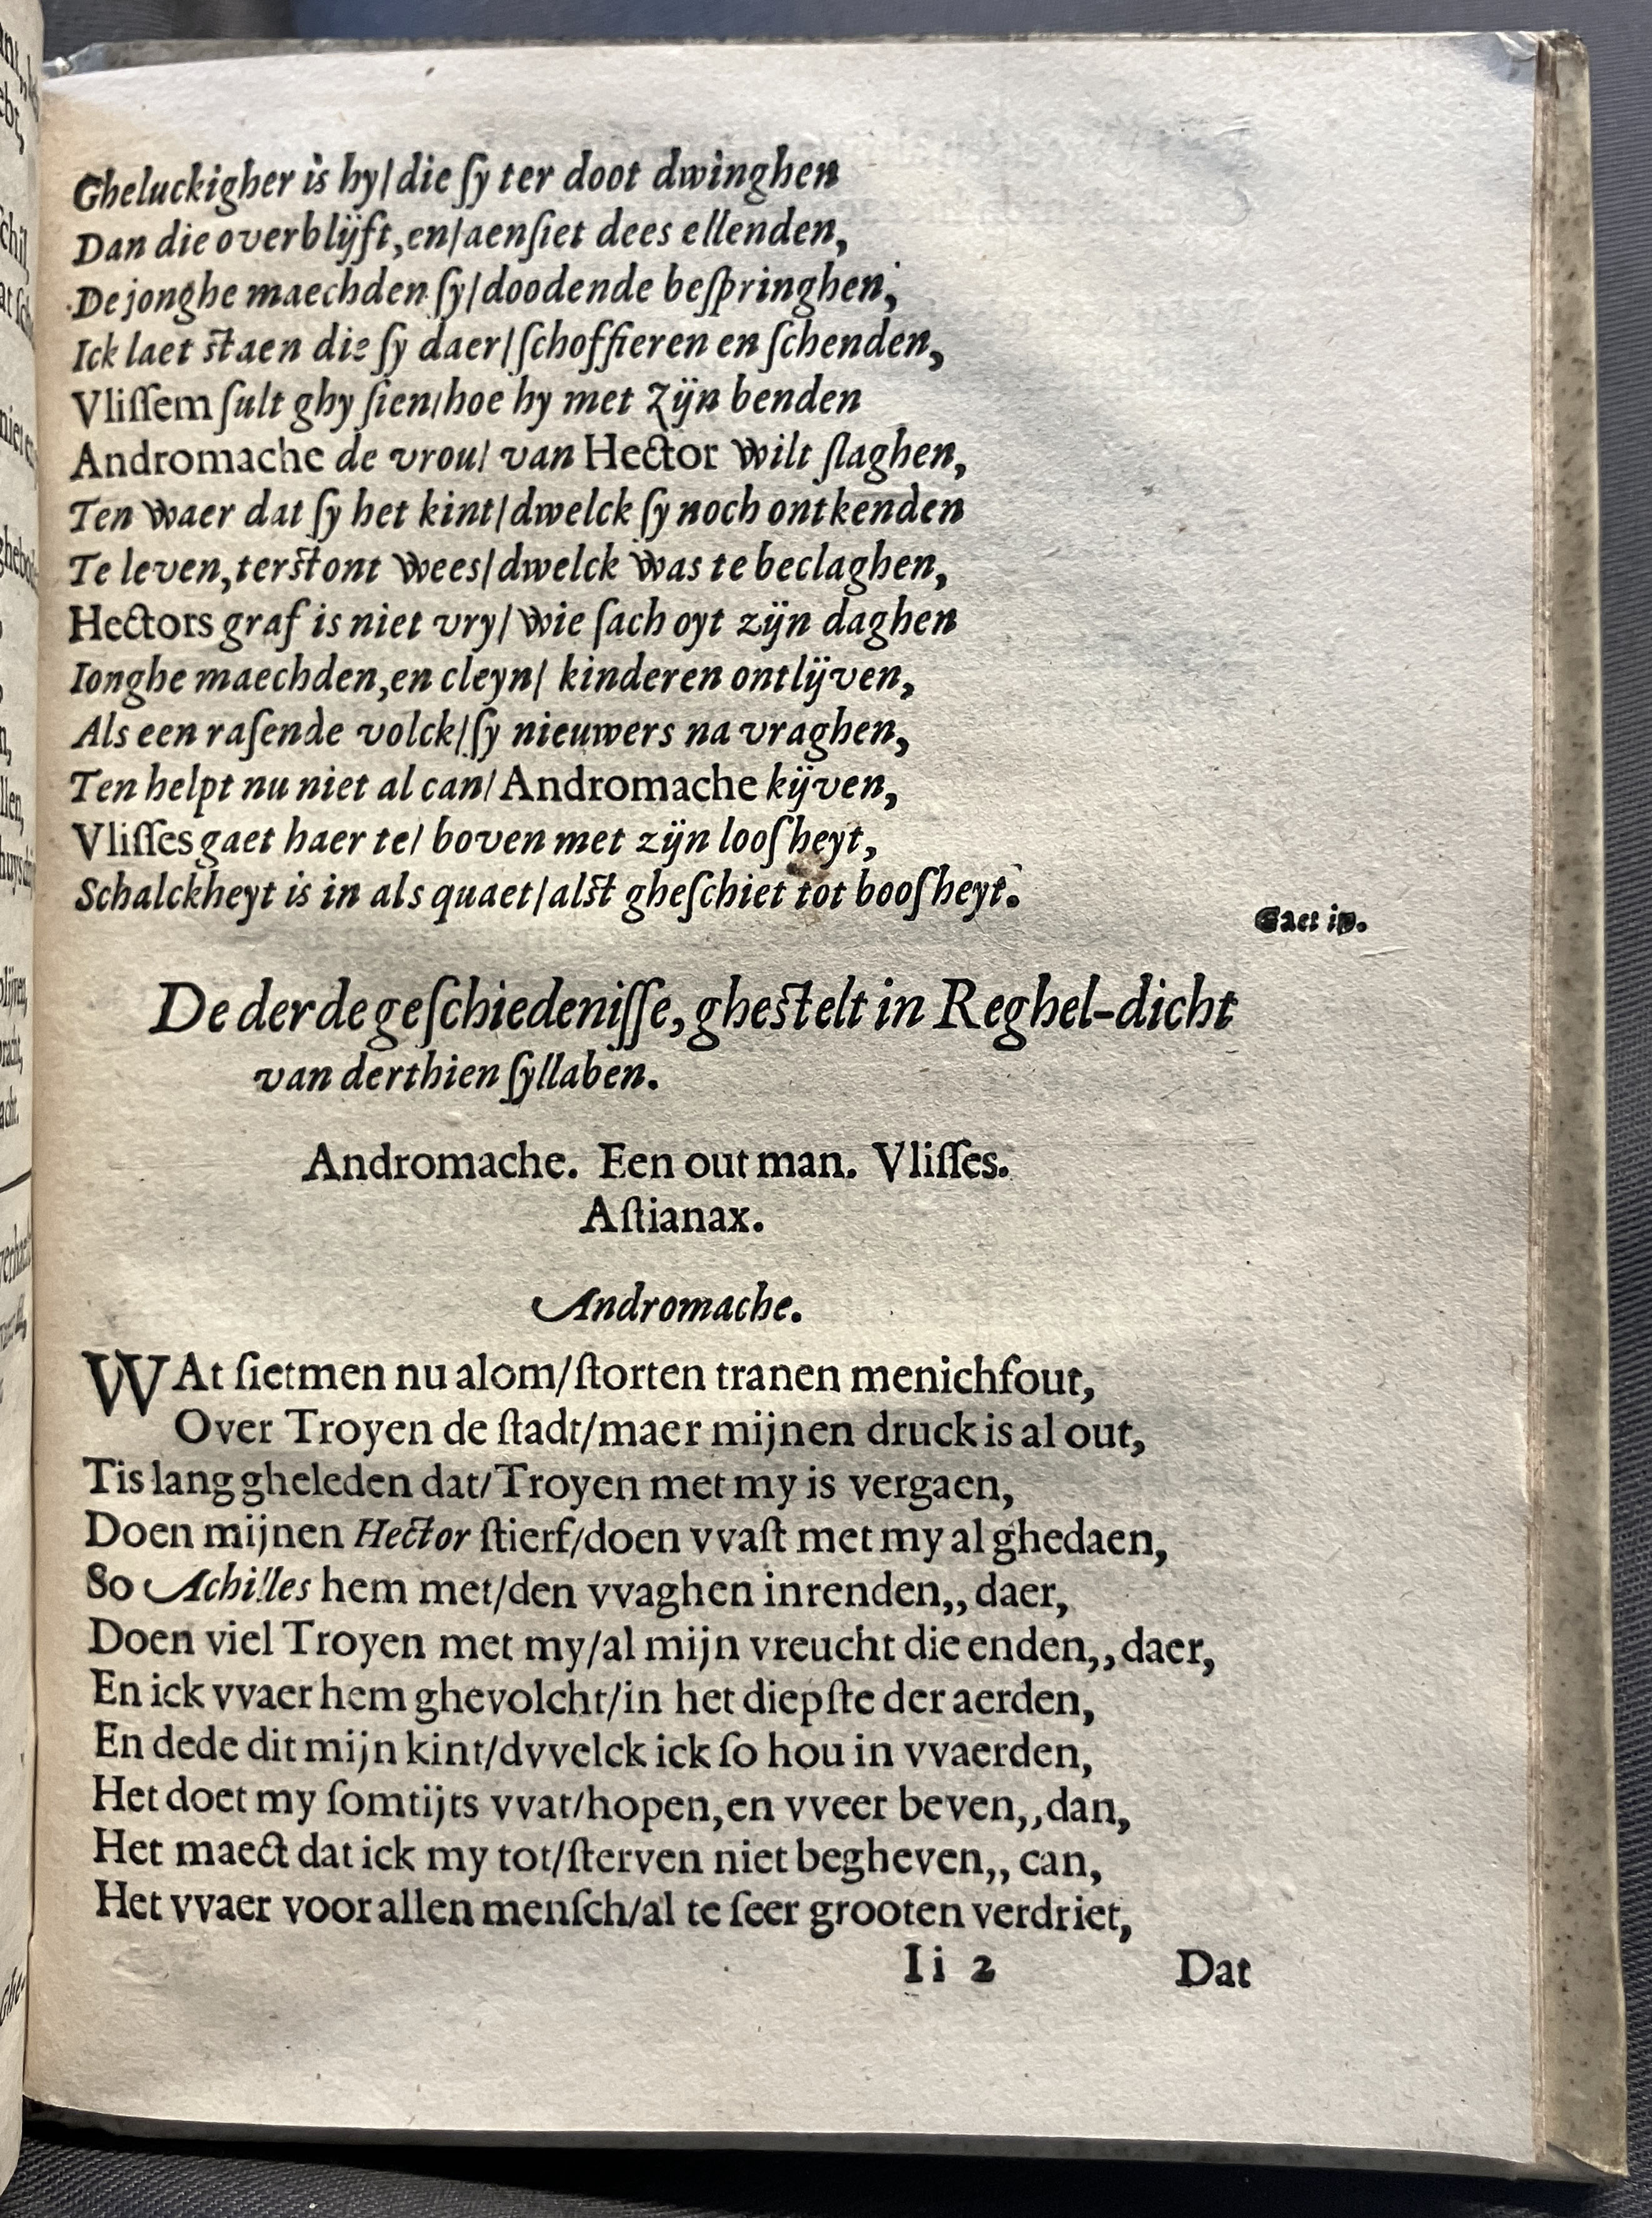 Gheluckigher is hy/die ſy ter doot dwinghen
Dan die overblijft,en/aenſiet dees ellenden,
De jonghe maechden ſy/doodende beſpringhen,
Ick laet ſtaen die ſy daer/ſchoffieren en ſchenden,
Vliſſem ſult ghy ſien/hoe hy met Zijn benden
Andromache de vrou/ van Hector wilt ſlaghen,
Ten waer dat ſy het kint/dwelck ſy noch ontkenden
Te leven,terſtont wees/dwelck was te beclaghen,
Hectors graf is niet vry/wie ſach oyt zijn daghen
Ionghe maechden,en cleyn/ kinderen ontlijven,
Als een raſende volck/ſy nieuwers na vraghen,
Ten helpt nu niet al can/Andromache kijven,
Vliſſes gaet haer te/ boven met zijn looſheyt,
Schalckheyt is in als quaet/alſt gheſchiet tot booſheyt.
Gaet in.
De derde geſchiedeniſſe, gheſtelt in Reghel-dicht
van derthien ſyllaben.
Andromache. Een out man. Vliſſes.
Aſtianax.
Andromache.
WAt ſietmen nu alom/ſtorten tranen menichfout,
Over Troyen de ſtadt/maer mijnen druck is al out,
Tis lang gheleden dat/Troyen met my is vergaen,
Doen mijnen Hector ſtierf/doen vvaſt met my al ghedaen,
So Achilles hem met/den vvaghen inrenden,, daer,
Doen viel Troyen met my/al mijn vreucht die enden,, daer,
En ick vvaer hem ghevolcht/in het diepſte der aerden,
En dede dit mijn kint/dvvelck ick ſo hou in vvaerden,
Het doet my ſomtijts vvat/hopen,en vveer beven,,dan,
Het maect dat ick my tot/ſterven niet begheven,, can,
Het vvaer voor allen menſch/al te ſeer grooten verdriet,
Ii 2 Dat